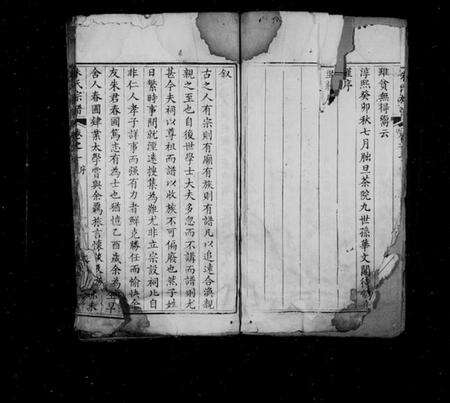 雖貧無得鬻云
淳熙癸卯秋七月朏旦茶院九世孫華文閣待
序
叙
古之人有宗則有廟有族則有譜凡以追遠合渙親
親之至也自後世學士大夫多忽而不講而譜則尤
甚今夫祠以尊祖而譜以收族不可偏廢也葢子姓
日繁時事闊就湮逺惟集為難尤非立宗設祠比自
非仁人孝子詳事而强有力者鮮克勝任而愉快全
友朱君春圃篤志有為士也猶憶乙酉歲余為 早
舍人春圃肄業太學嘗與余羇旅言懷
朱氏宗譜 卷之 序